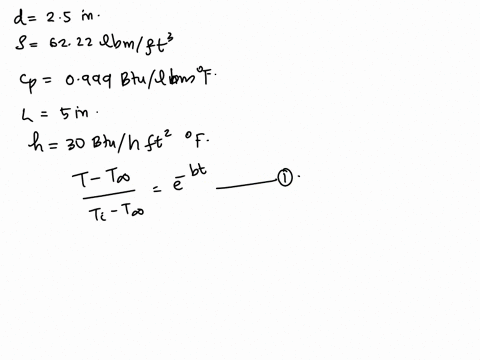 d = 2.5 in.
ρ = 62.22 lbm/ft³
Cp = 0.999 Btu/lbm °F.
L = 5 in.
h = 30 Btu/h ft² °F.
(T - T∞)/(Ti - T∞) = e^-bt ——— ①.